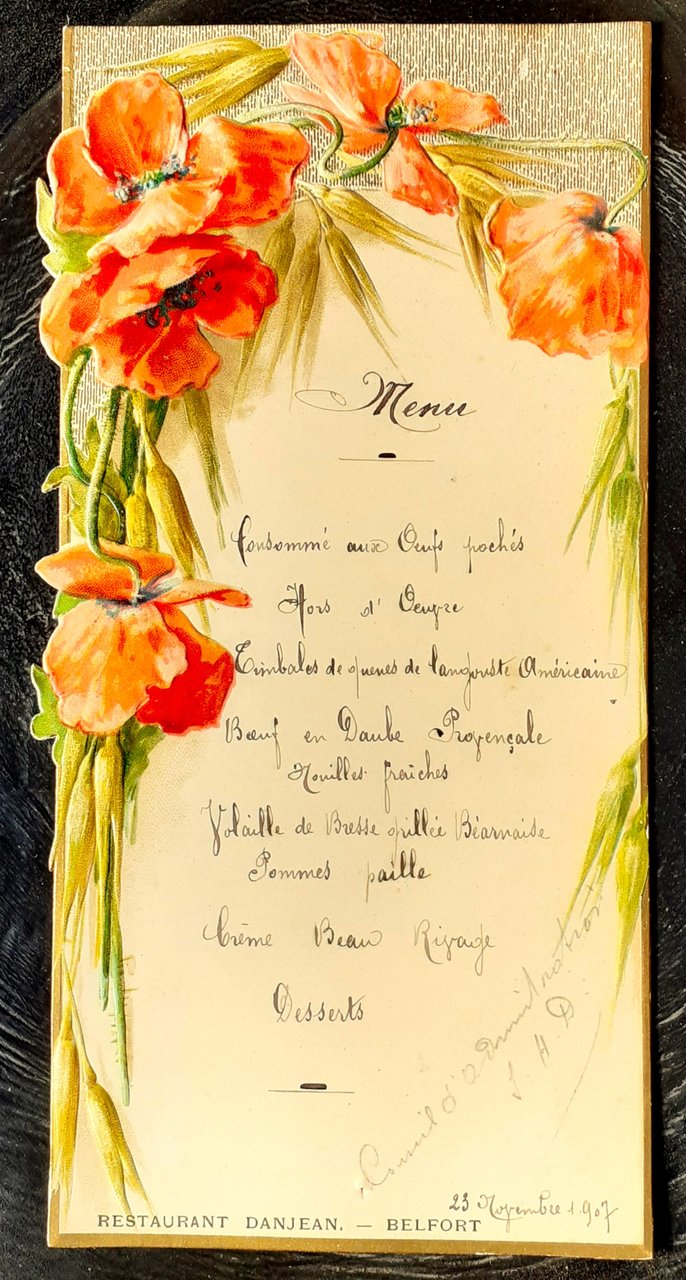 Menu
Consommé aux Oeufs pochés
Hors d' Oeuvre
Timbales de queues de langouste Américaine
Bœuf en Daube Provençale
Nouilles fraîches
Volaille de Bresse grillée Béarnaise
Pommes paille
Crème Beau Rivage
Desserts
Conseil d'Administration
S. H. D.
23 Novembre 1907
RESTAURANT DANJEAN. — BELFORT